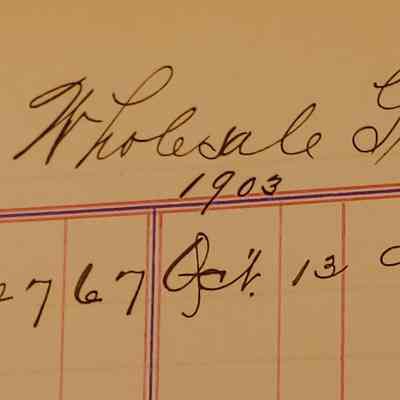 Wholesale
1903
767 Oct. 13